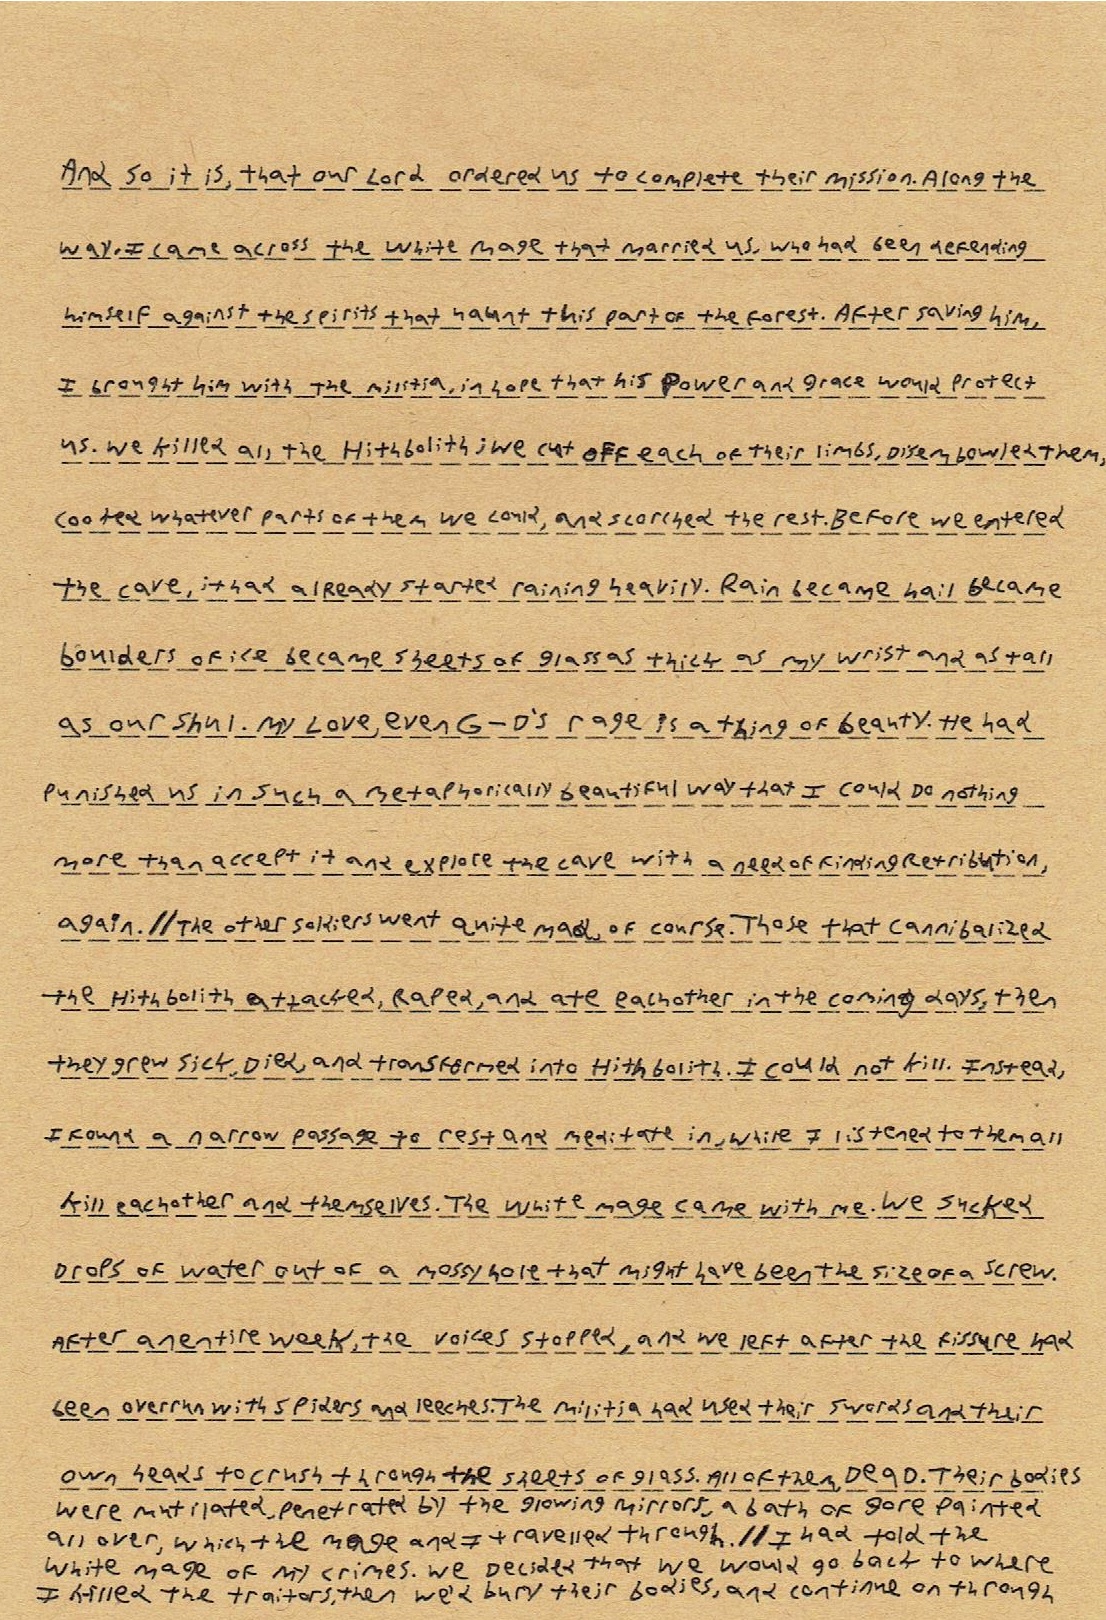 And so it is, that our Lord ordered us to complete their mission. Along the
way, I came across the white mage that married us, who had been defending
himself against the spirits that haunt this part of the forest. After saving him,
I brought him with the militia, in hope that his power and grace would protect
us. We killed all the Hithbolith; we cut off each of their limbs, Disembowled them,
cooked whatever parts of them we could, and scorched the rest. Before we entered
the cave, it had already started raining heavily. Rain became hail became
boulders of ice became sheets of glass as thick as my wrist and as tall
as our shul. My Love, even G-D's rage is a thing of beauty. He had
punished us in such a metaphorically beautiful way that I could Do nothing
more than accept it and explore the cave with a need of finding Retribution,
again. // The other soldiers went quite mad, of course. Those that cannibalized
the Hithbolith attacked, Raped, and ate eachother in the coming days, then
they grew sick, Died, and transformed into Hithbolith. I could not kill. Instead,
I found a narrow passage to rest and meditate in, while I listened to them all
kill eachother and themselves. The white mage came with me. We sucked
Drops of water out of a mossy hole that might have been the size of a screw.
After an entire week, the voices stopped, and we left after the fissure had
been overrun with spiders and leeches. The militia had used their swords and their
own heads to crush through the sheets of glass. All of them, DeaD. Their bodies
were mutilated, penetrated by the glowing mirrors, a bath of gore painted
all over, which the mage and I travelled through. // I had told the
white mage of my crimes. We decided that we would go back to where
I killed the traitors, then we'd bury their bodies, and continue on through